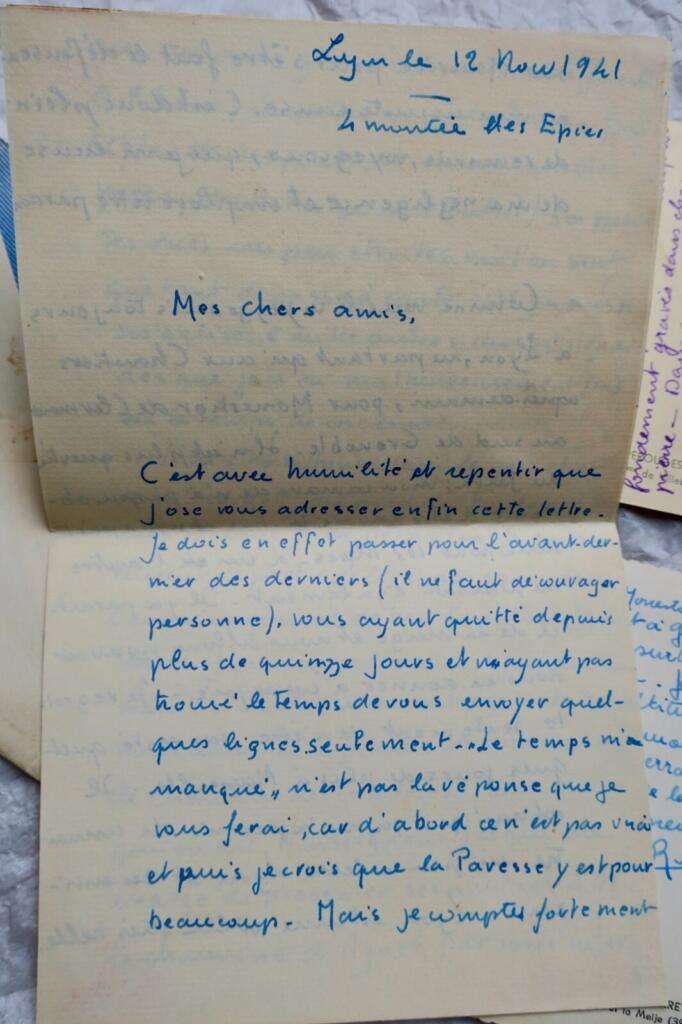 Lyon le 12 Nov 1941
4 montée des Epies
Mes chers amis,
C'est avec humilité et repentir que
j'ose vous adresser enfin cette lettre.
Je dois en effet passer pour l'avant-der-
nier des derniers (il ne faut décourager
personne), vous ayant quitté depuis
plus de quinze jours et n'ayant pas
trouvé le temps de vous envoyer quel-
ques lignes seulement. "Le temps m'a
manqué" n'est pas la réponse que je
vous ferai, car d'abord ce n'est pas vrai
et puis je crois que la Paresse y est pour
beaucoup. Mais je compte fortement
gravés dans
pierre —
la Meije